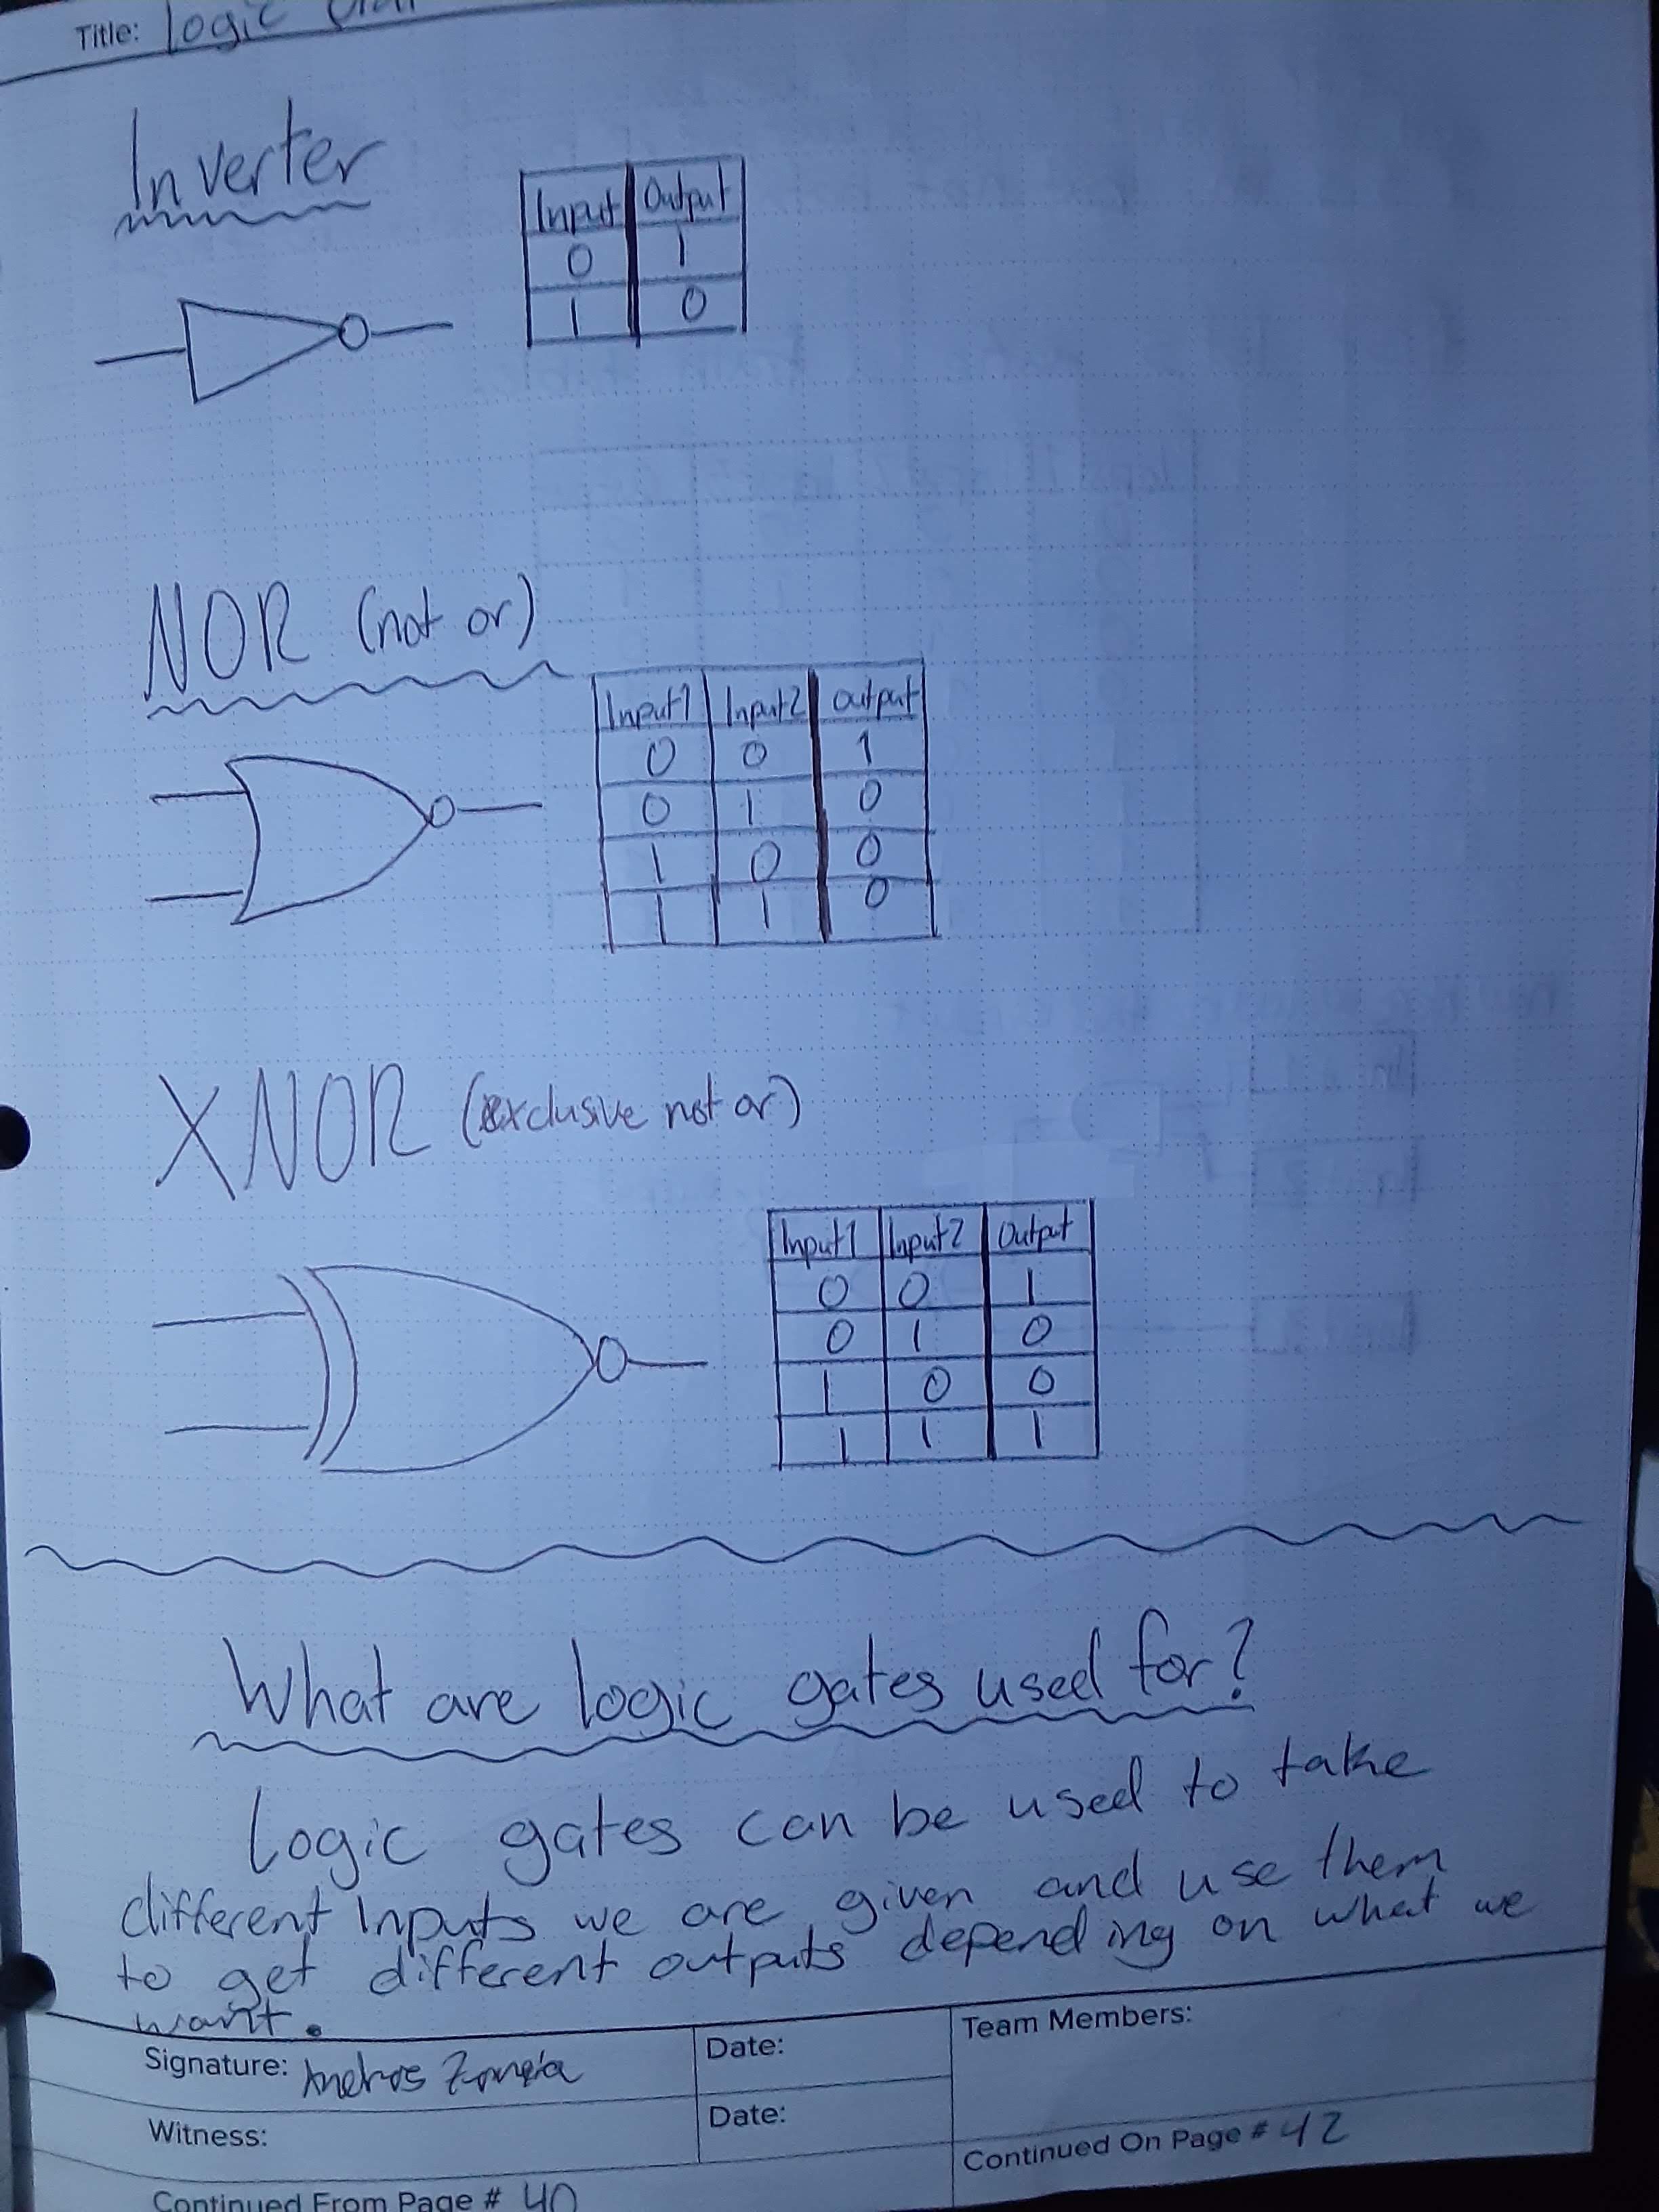 Title: logic
Inverter
Input Output
0 1
1 0
NOR (not or)
Input1 Input2 output
0 0 1
0 1 0
1 0 0
1 1 0
XNOR (exclusive not or)
Input1 Input2 Output
0 0 1
0 1 0
1 0 0
1 1 1
What are logic gates used for?
Logic gates can be used to take
different Inputs we are given and use them
to get different outputs depending on what we
want.
Signature:
Date:
Team Members:
Witness:
Date:
Continued On Page # 42
Continued From Page # 40